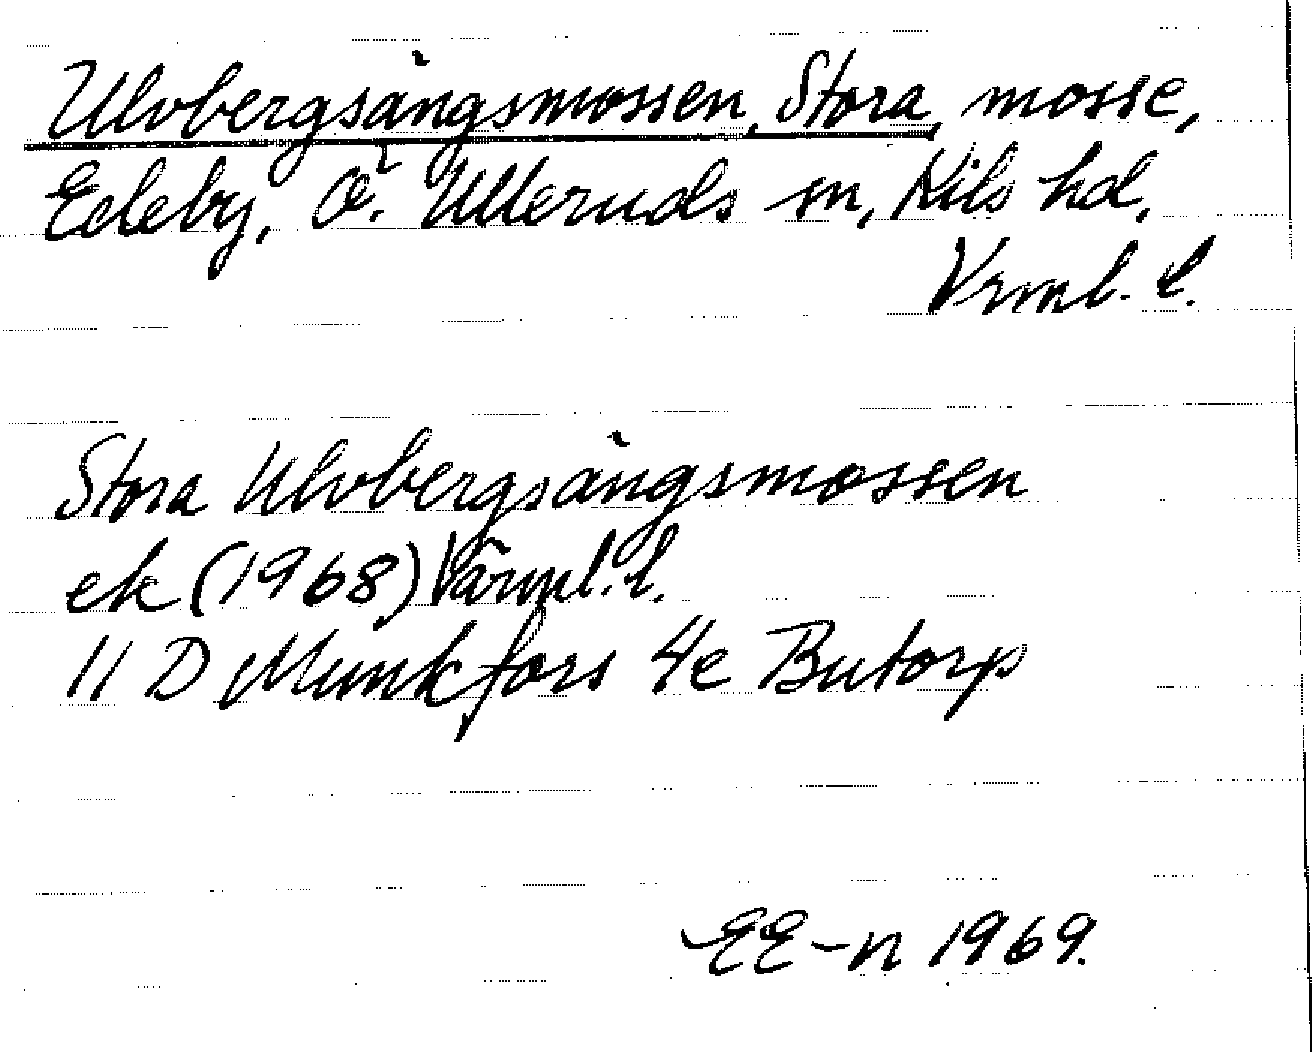 Ulvbergsängsmossen, Stora, mosse,
Edeby, Ö. Ulleruds sn, Kils hd,
Vrml. l.
Stora Ulvbergsängsmossen
ek (1968) Värml. l.
11 D Munkfors 4e Butorp
EE-n 1969.